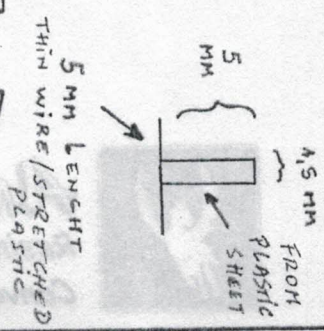 5
MM
1,5 MM
FROM
PLASTIC
SHEET
5 MM LENGHT
THIN WIRE/STRETCHED
PLASTIC